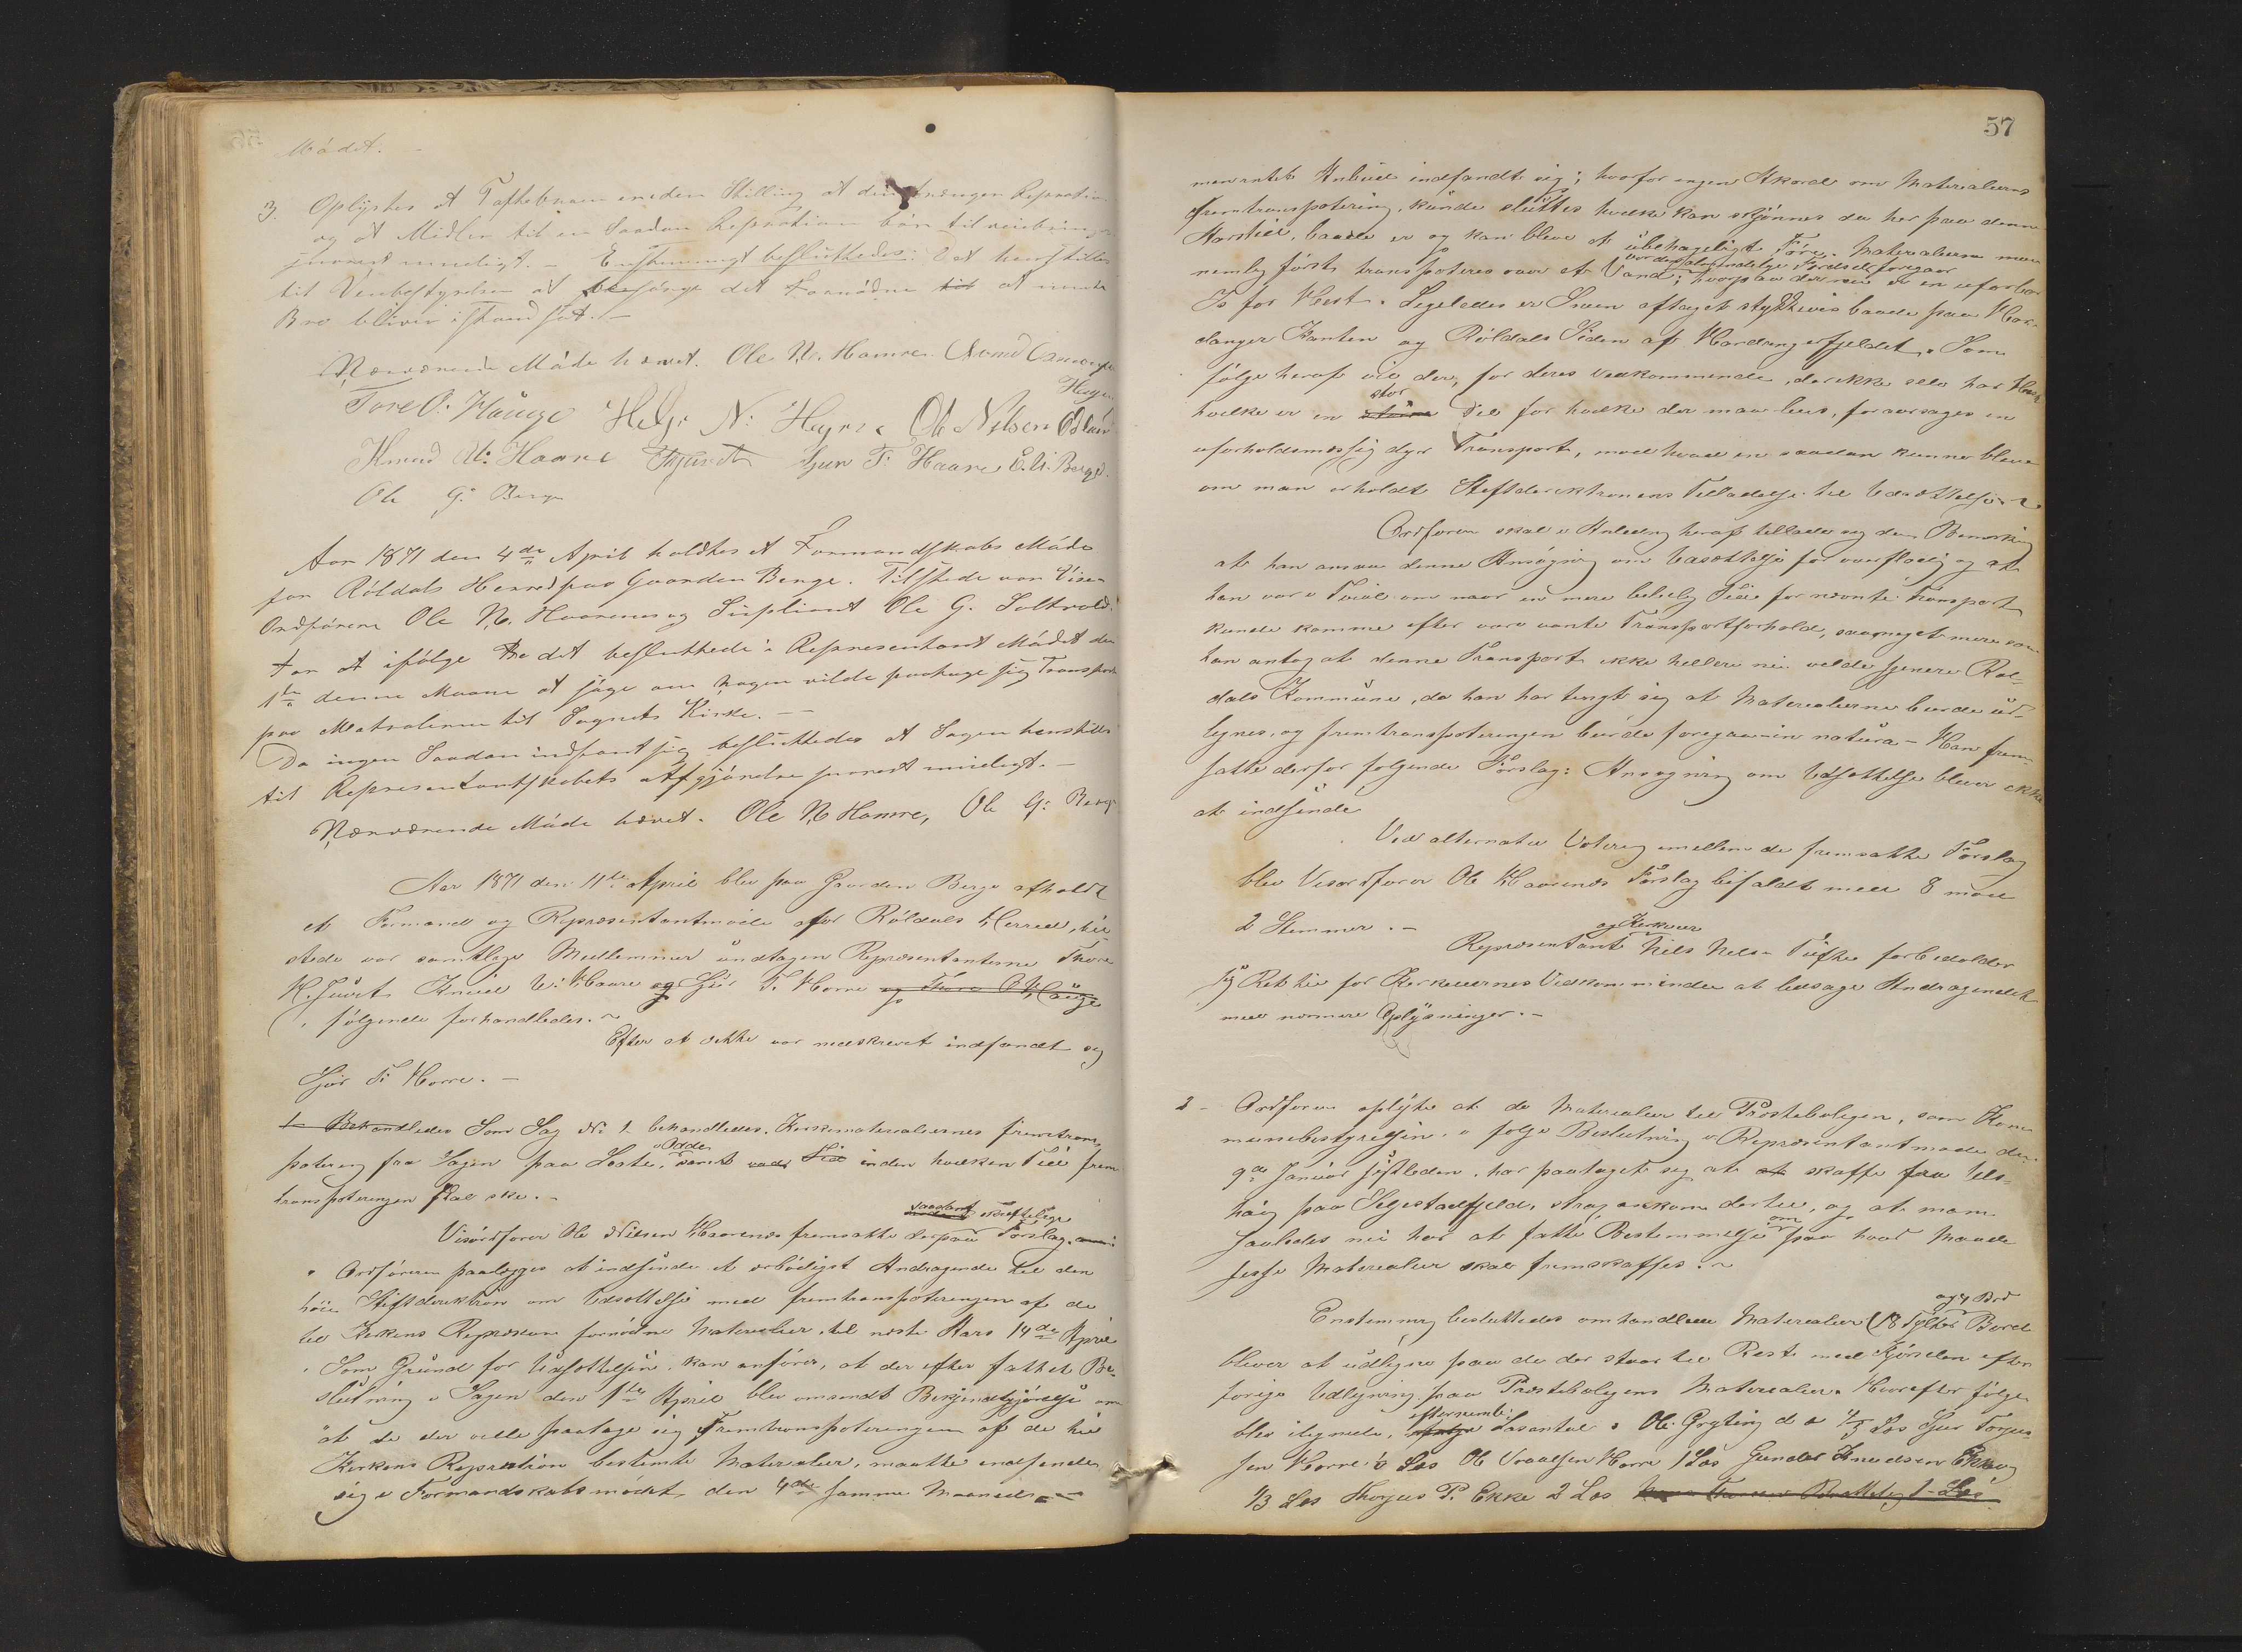 Mödet. —
3. Oplystes at Toftebroen er i den Stilling at den trænger Reparation
og at Midler til en Saadan Reparation bör tilveiebringes
snarest mueligt. — Enstemmigt besluttedes: Det henstilles
til Veibestyrelsen at besörge det Fornödne til at nævnte
Bro bliver istandsat. —
Nærværende Möde hævet. Ole N. Hamre.
Tore O: Hauge Helge N: Ole Nilsen
Knud W: Haare Gjur T: Haare
Ole G: Berge
Aar 1871 den 4de April holdtes et Formandskabs Möde
for Röldals Herred paa Gaarden Berge. Tilstede var Vise-
Ordförere Ole N. Haarenes og Supliant Ole G.
for at ifölge det besluttede i Representant Mödet den
1ste denne Maane at söge om nogen vilde paatage sig Transporten
paa Matrialerne til Sognets Kirke. —
Da ingen Saadan indfant sig besluttedes at Sagen henstilles
til Representantskabets Afgjörelse snarest mueligt. —
Nærværende Möde hævet. Ole N Hamre, Ole G: Berge
Aar 1871 den 11te April blev paa Gaarden Berge afholdt
et Formand og Representantmöde for Röldals Herred, til-
stede var samtlige Medlemmer undtagen Representanterne Thore
H. Juvet Knud W: Haare og Gjur T. Horre og Thore O Hauge
, følgende forhandledes. ~
Efter at dette var nedskrevet indfandt sig
Gjur T. Horre. —
1 Behandledes Som Sag No 1 behandledes. Kirkematerialiernes fremtrans-
i Odda
potering fra Sagen paa samt inden hvilken Tid frem-
transpoteringen skal ske. —
saadant skriftlige
Viseordforer Ole Nilsen Haarenes fremsatte derpaa Forslag
" Ordföreren paalægges at indsende et ærbödigst Andragende til den
höie Stiftsdirektion om Udsættelse med fremtranspoteringen af de
til Kirkens Repration fornödne Materialier, til næste Aars 14de April
. Som Grund for Udsættelsen, kan anföres, at der efter fattet Be-
slutning i Sagen den 1ste April blev omsendt Bekjendtgjörelse om
at de der ville paatage sig Fremtranspoteringen af de til
Kirkens Repration bestemte Materialier, maatte indfinde
sig i Formandskabsmödet den 4de samme Maaned —
57
men intet Anbud indfandt sig; hvorfor ingen Akord om Materialiernes
fremtranspotering, kunde sluttes hvilke kan skjönnes da her paa denne
Aarstid, baade er og kan blive et übehageligt Före. Materialierne maa
hvor den almindelige Færdsel foregaar
nemlig först transpoteres over et Vand; hvorpaa der nu er en uforbar
Is for Hest. Ligeledes er Sneen aftaget stykkevis baade paa Har-
danger Kanten og Röldals Siden af Hardangerfjeldet. Som
fölge heraf vil der, for deres vedkommende, der ikke selv har Hest
stor
hvilke er en större Del for hvilke der maa leies, foraarsages en
uforholdsmæssig dyr Transport, mod hvad en saadan kunne blive
om man erholdt Stiftsdirektionens Tilladelse til Udsættelse ~
Ordforeren skal i Anledning heraf tillade sig den Bemærkning
at han ansaa denne Ansögning om Udsættelse for overflødig og at
han var i Tvivl om naar en mere beleilig Tid for nævnte Transport
kunde komme efter vore vante Transportforhold, saameget mere som
han antog at denne Transport ikke hellere nu vilde Röl-
dals Kommune, da han har tængt sig at Materialierne burde ud-
lignes, og fremtranspoteringen burde foregaa in natura — Han frem-
satte derfor følgende Forslag: Ansøgning om Udsættelse bliver ikke
at indsende
Ved alternativ Votering imellem de fremsatte Forslag
blev Viseordforer Ole Haarenes Forslag bifaldt med 8 mod
2 Stemmer. —
og Kirkeværge
Representant Nils Nels. Tufte forbeholder
sig Ret til for Kirkeiernes Vedkommende at ledsage Andragendet
med nærmere Oplysninger. —
2 — Ordforeren oplyste at de Materialier til Prostebolegen, som Kom-
munebestyrelsen, i folge Beslutning i Representantmöde den
9de Januar sistleden, har paataget sig at at skaffe fra Uls-
haug paa Seljestadfjeld, strax ankom dertil, og at man
om
saaledes nu har at fatte Bestemmelse paa hvad Maade
disse Materialier skal fremskaffes. ~
og 4 Bord
Enstemmig besluttedes omhandlede Materialier (18 Tylter Bord
bliver at udligne paa de der staar til Rest med Kjörselen efter
forrige Udligning paa Prostebolegens Materialier. Hvorefter fölgen
efternævnte
blev ilignede, Læsantal: Ole 1/3 Læs Gjur Torgius-
sen Horre Læs Ole Horre 1 Læs Gunder Knudsen Ekke
1/3 Læs Thorjus P. Ekke 2 Læs 1 Læs